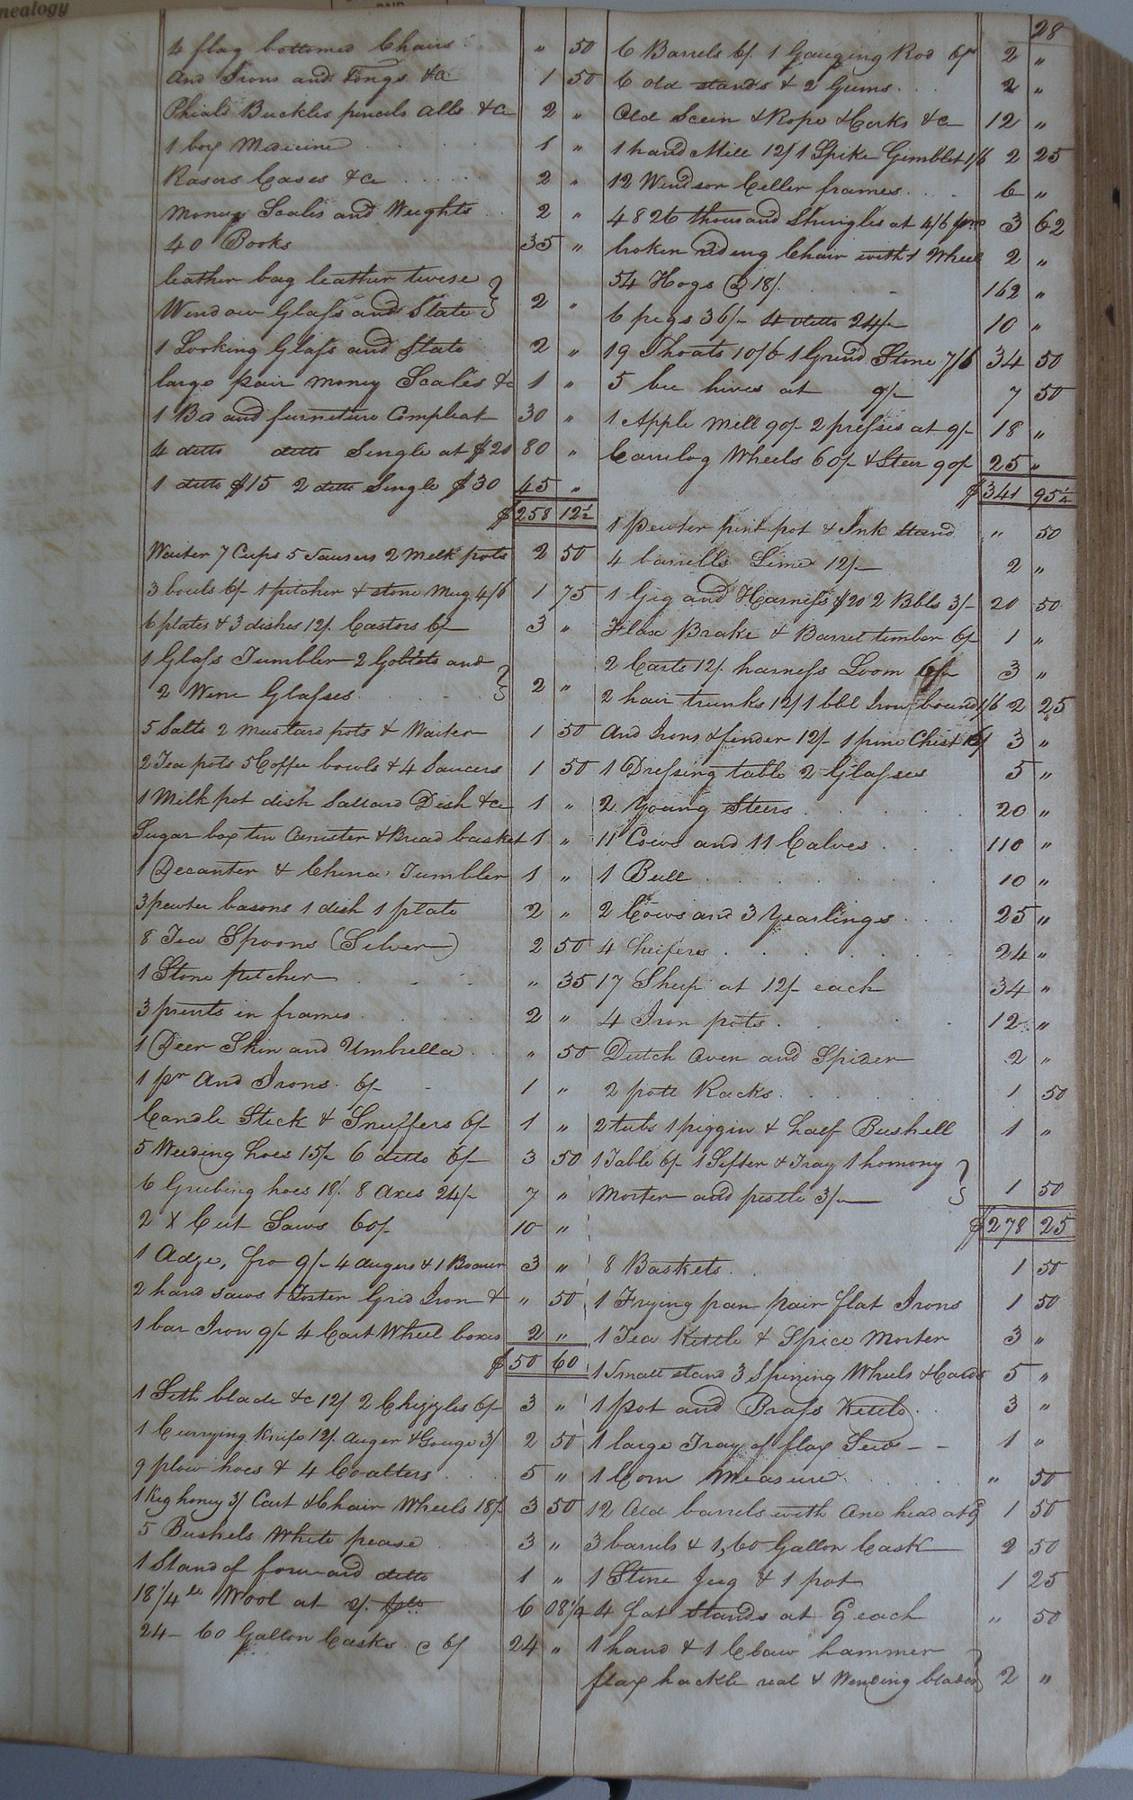 nealogy
PAID
28
4 flag bottomed Chairs " 50
And Irons and Tongs &c 1 50
Phials Buckles pencils Alls &c 2 "
1 box Medicine 1 "
Rasors Cases &c 2 "
Money Scales and Weights 2 "
40 Books 35 "
leather bag leather
Window Glass and Slate 2 "
1 Looking Glass and Slate 2 "
large pair money Scales &c 1 "
1 Bed and furneture Compleat 30 "
4 ditto ditto Single at $20 80 "
1 ditto $15 2 ditto Single $30 45 "
$ 258 12½
Waiter 7 Cups 5 Sausers 2 Milk pots 2 50
3 bowls 6/- 1 pitcher & stone Mug 4/6 1 75
6 plates & 3 dishes 12/. Castors 6/- 3 "
1 Glass Tumbler 2 Goblets and
2 Wine Glasses 2 "
5 Salts 2 mustard pots & Waiter 1 50
2 Tea pots 5 Coffee bowls & 4 Saucers 1 50
1 Milk pot dish Sallard Dish &c 1 "
Sugar box tin Canister & Bread basket 1 "
1 Decanter & China Tumbler 1 "
3 pewter basons 1 dish 1 plate 2 "
8 Tea Spoons (Silver) 2 50
1 Stone pitcher " 35
3 prints in frames 2 "
1 Deer Skin and Umbrella " 50
1 pr And Irons 6/- 1 "
Candle Stick & Snuffers 6/- 1 "
5 Weeding hoes 15/- 6 ditto 6/- 3 50
6 Grubing hoes 18/. 8 Axes 24/- 7 "
2 X Cut Saws 60/- 10 "
1 Adze, fro 9/- 4 augers & 1 3 "
2 hand saws 1 Toster Grid Iron & " 50
1 bar Iron 9/- 4 Cart Wheel boxes 2 "
$ 50 60
1 Sith blade &c 12/. 2 Chizzles 6/- 3 "
1 Currying Knife 12/. Auger & Gouge 3/ 2 50
9 plow hoes & 4 Coalters 5 "
1 Keg honey 3/ Cart & Chair Wheels 18/- 3 50
5 Bushels White pease 3 "
1 Stand of forward ditto 1 "
18¼ lb Wool at 2/. 6 08¼
24 - 60 Gallon Casks c 6/ 24 "
6 Barrels 6/. 1 Gauging Rod 6/- 2 "
6 Old stands & 2 Gums 2 "
Old Scein & Rope & Corks &c 12 "
1 hand Mill 12/ 1 Spike Gimblet 1/6 2 25
12 Windsor Celler frames 6 "
4826 thousand Shingles at 4/6 3 62
broken rideing Chair with 1 Wheel 2 "
54 Hogs @ 18/. 162 "
6 pigs 36/- 4 ditto 24/- 10 "
19 Shoats 10/6 1 Grind Stone 7/6 34 50
5 bee hives at 9/- 7 50
1 Apple Mill 90/- 2 presses at 9/- 18 "
Carrilog Wheels 60/- & 90/ 25 "
$ 341 95¼
1 pewter pint pot & Ink stand " 50
4 barrells Lime 12/- 2 "
1 Gig and Harness $20 2 Bbls 3/- 20 50
Flax Brake & Barrel timber 6/ 1 "
2 Carts 12/. harness Loom 6/- 3 "
2 hair trunks 12/ 1 bbl Iron bound 1/6 2 25
And Irons & fender 12/- 1 pine Chest 3 "
1 Dressing table 2 Glasses 5 "
2 Young Steers 20 "
11 Cows and 11 Calves 110 "
1 Bull 10 "
2 Cows and 3 Yearlings 25 "
4 heifers 24 "
17 Sheep at 12/- each 34 "
4 Iron pots 12 "
Dutch Oven and Spider 2 "
2 pott Racks 1 50
2 tubs 1 piggin & half Bushell 1 "
1 Table 6/- 1 Sifter & Tray 1 homony
Morter and pistle 3/- 1 50
$ 278 25
8 Baskets 1 50
1 Frying pan pair flat Irons 1 50
1 Tea Kettle & Spice Morter 3 "
1 Small stand 3 Spining Wheels & Cards 5 "
1 pot and Brass Kettle 3 "
1 large Tray of flax 1 "
1 Corn Measure " 50
12 Old barrels with One head at 1 50
3 barrels & 1, 60 Gallon Cask 2 50
1 Stone Jug & 1 pot 1 25
4 fat Stands at each " 50
1 hand & 1 Claw hammer
flax hackle real & Winding blades 2 "